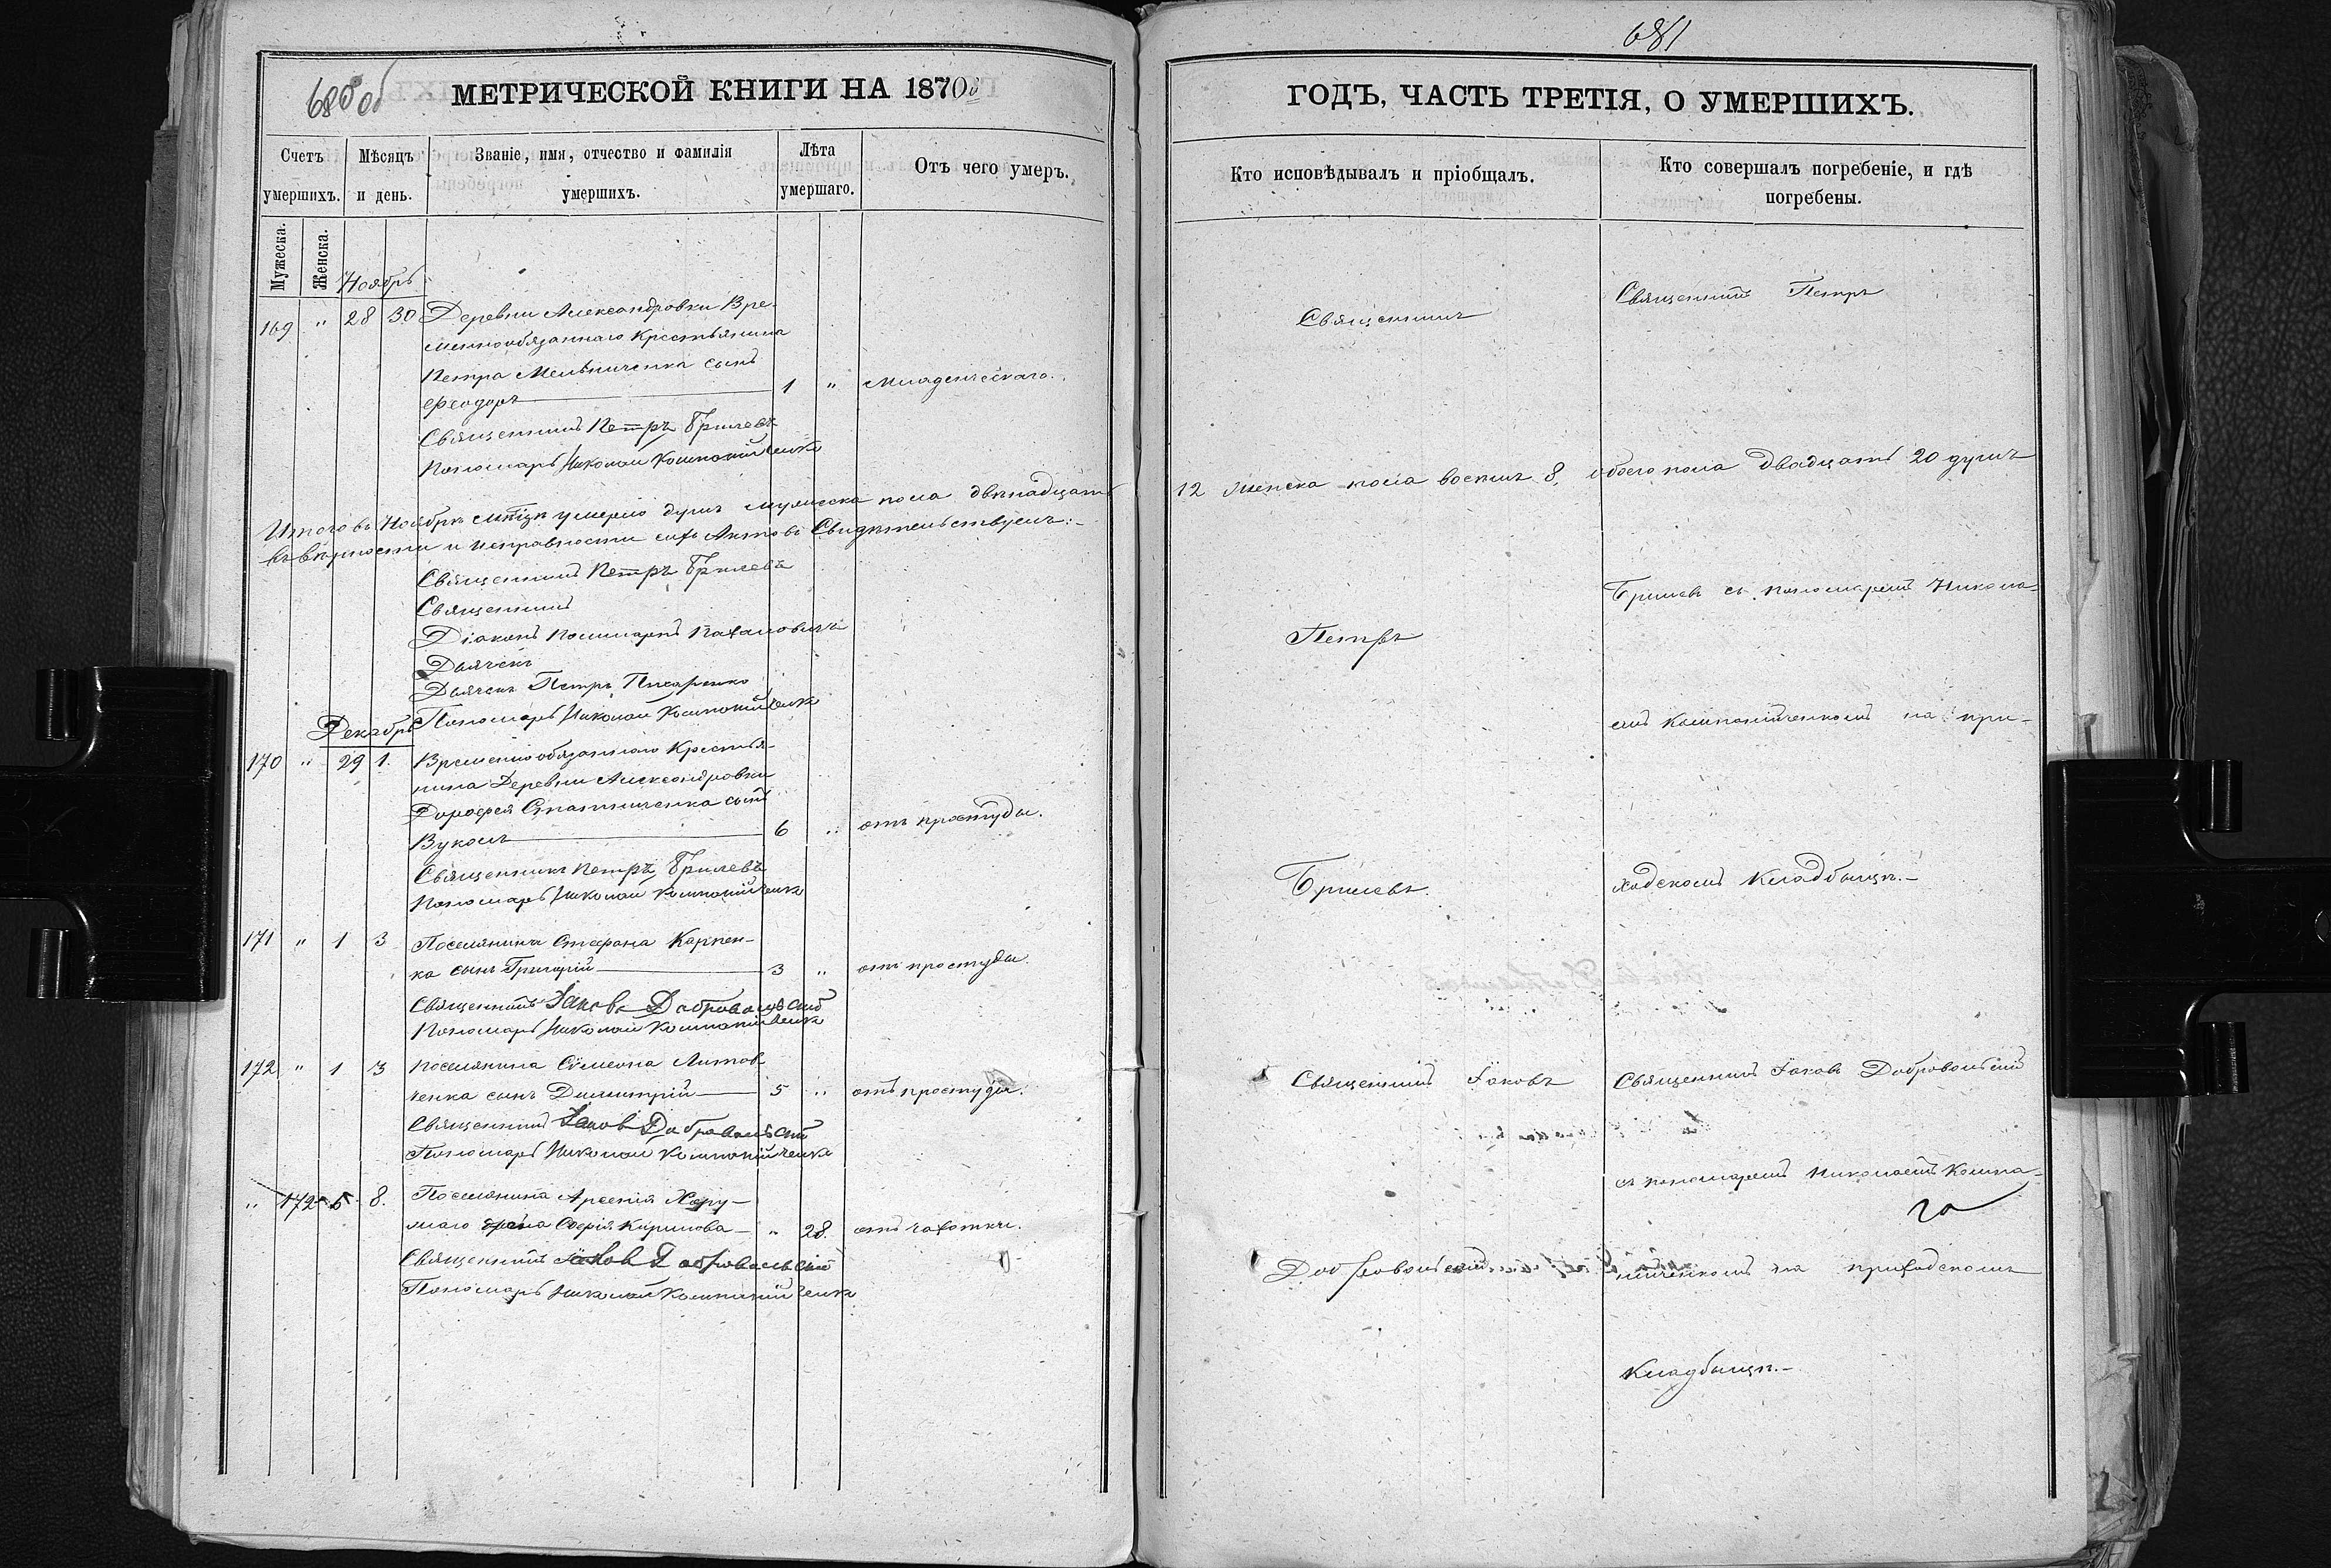 680об
МЕТРИЧЕСКОЙ КНИГИ НА 1870й
Счетъ умершихъ.
Мѣсяцъ и день.
Званіе, имя, отчество и фамилія умершихъ.
Лѣта умершаго.
Отъ чего умеръ.
Мужеска.
Женска.
Ноябрь
169 " 28 30 Деревни Александровки Вре-
меннообязаннаго Крестьянина
Петра Мельниченка сынъ
Ѳеодоръ 1 " Младенческаго.
Священникъ Петръ Брилевъ
Пономарь Николай Компанійченко
Итого въ Ноябрѣ мѣсяцѣ умерло душъ мужеска пола двѣнадцать
въ вѣрности и исправности сихъ Актовъ Свидѣтельствуемъ:-
Священникъ Петръ Брилевъ
Священникъ
Діаконъ
Дьячекъ
Дьячекъ Петръ Писаренко
Пономарь Николай Компанійченко
Декабрь
170 " 29 1. Временнообязаннаго Крестья-
нина Деревни Александровки
Дорофея сынъ
Вуколъ 6 " отъ простуды.
Священникъ Петръ Брилевъ
Пономарь Николай Компанійченко
171 " 1 3 Поселянина Стефана Карпен-
ка сынъ Григорій 3 " отъ простуды.
Священникъ Іаковъ Добровольскій
Пономарь Николай Компанійченко
172 " 1 3 Поселянина Сѵмеона Литов-
ченка сынъ Димитрій 5 " отъ простуды.
Священникъ Іаковъ Добровольскій
Пономарь Николай Компанійченко
" 172 5 8. Поселянина Арсенія
Софія Кирилова " 28. отъ чахотки.
Священникъ Іаковъ Добровольскій
Пономарь Николай Компанійченко
681
ГОДЪ, ЧАСТЬ ТРЕТІЯ, О УМЕРШИХЪ.
Кто исповѣдывалъ и пріобщалъ.
Кто совершалъ погребеніе, и гдѣ погребены.
Священникъ
Священникъ Петръ
12 женска пола восемь 8, обоего пола двадцать 20 душъ
Брилевъ съ пономаремъ Никола-
Петръ
емъ Компанійченкомъ на при-
Брилевъ.
ходскомъ Кладбыщѣ.-
Священникъ Іаковъ
Священникъ Іаковъ Добровольскій
съ пономаремъ Николаемъ Компа-
Добровольскій
нійченкомъ на приходскомъ
Кладбыщѣ.-